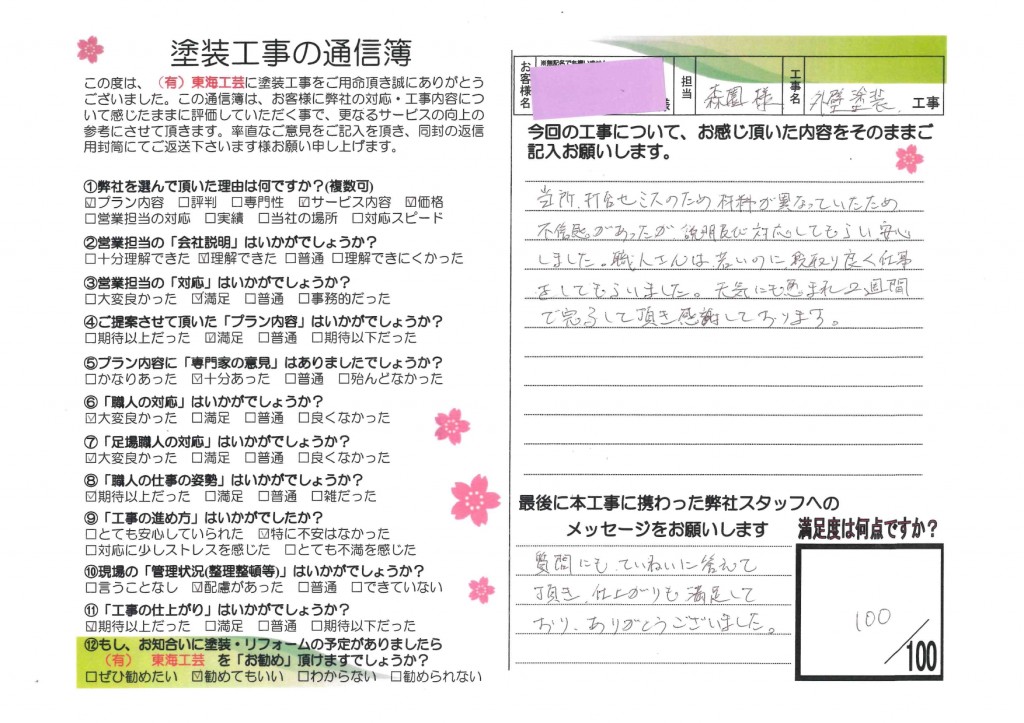 塗装工事の通信簿
この度は、（有）東海工芸に塗装工事をご用命頂き誠にありがとう
ございました。この通信簿は、お客様に弊社の対応・工事内容につ
いて感じたままに評価していただく事で、更なるサービスの向上の
参考にさせて頂きます。率直なご意見をご記入を頂き、同封の返信
用封筒にてご返送下さいます様お願い申し上げます。
①弊社を選んで頂いた理由は何ですか？(複数可)
☑プラン内容 □評判 □専門性 ☑サービス内容 ☑価格
□営業担当の対応 □実績 □当社の場所 □対応スピード
②営業担当の「会社説明」はいかがでしょうか？
□十分理解できた ☑理解できた □普通 □理解できにくかった
③営業担当の「対応」はいかがでしょうか？
□大変良かった ☑満足 □普通 □事務的だった
④ご提案させて頂いた「プラン内容」はいかがでしょうか？
□期待以上だった ☑満足 □普通 □期待以下だった
⑤プラン内容に「専門家の意見」はありましたでしょうか？
□かなりあった ☑十分あった □普通 □殆んどなかった
⑥「職人の対応」はいかがでしょうか？
☑大変良かった □満足 □普通 □良くなかった
⑦「足場職人の対応」はいかがでしょうか？
☑大変良かった □満足 □普通 □良くなかった
⑧「職人の仕事の姿勢」はいかがでしょうか？
☑期待以上だった □満足 □普通 □雑だった
⑨「工事の進め方」はいかがでしたか？
□とても安心していられた ☑特に不安はなかった
□対応に少しストレスを感じた □とても不満を感じた
⑩現場の「管理状況(整理整頓等)」はいかがでしょうか？
□言うことなし ☑配慮があった □普通 □できていない
⑪「工事の仕上がり」はいかがでしょうか？
☑期待以上だった □満足 □普通 □期待以下だった
⑫もし、お知合いに塗装・リフォームの予定がありましたら
（有） 東海工芸 を「お勧め」頂けますでしょうか？
□ぜひ勧めたい ☑勧めてもいい □わからない □勧められない
お客様名 様 担当 森園様 工事名 外壁塗装 工事
今回の工事について、お感じ頂いた内容をそのままご
記入お願いします。
当所、打合せミスのため材料が異なっていたため
不信感があったが説明及び対応してもらい、安心
しました。職人さんは若いのに、段取り良く仕事
をしてもらいました。天気にも恵まれ2週間
で完了して頂き感謝しております。
最後に本工事に携わった弊社スタッフへの
メッセージをお願いします
質問にもていねいに答えて
頂き、仕上がりも満足して
おり、ありがとうございました。
満足度は何点ですか？
100
/100